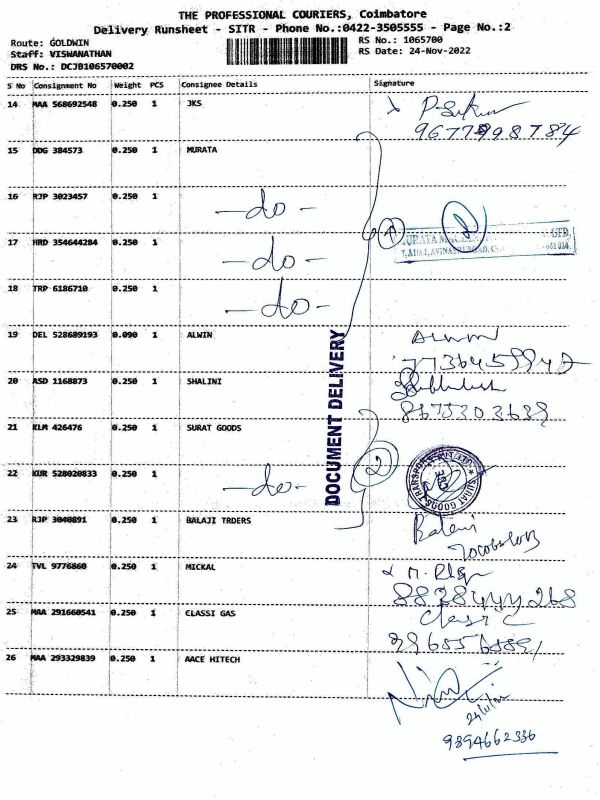 THE PROFESSIONAL COURIERS, Coimbatore
Delivery Runsheet - SITR - Phone No.:0422-3505555 - Page No.:2
Route: GOLDWIN
RS No.: 1065700
Staff: VISWANATHAN
RS Date: 24-Nov-2022
DRS No.: DCJB106570002
S No Consignment No Weight PCS Consignee Details Signature
14 MAA 568692548 0.250 1 JKS
15 DDG 384573 0.250 1 MURATA
16 RJP 3023457 0.250 1 -do-
17 HRD 354644284 0.250 1 -do-
18 TRP 6186710 0.250 1 -do-
19 DEL 528689193 0.090 1 ALWIN
20 ASD 1168873 0.250 1 SHALINI
21 KLM 426476 0.250 1 SURAT GOODS
22 KUR 528020833 0.250 1 -do-
23 RJP 3040891 0.250 1 BALAJI TRDERS Balaji
24 TVL 9776860 0.250 1 MICKAL
25 MAA 291660541 0.250 1 CLASSI GAS
26 MAA 293329839 0.250 1 AACE HITECH
9894662336
DOCUMENT DELIVERY
2